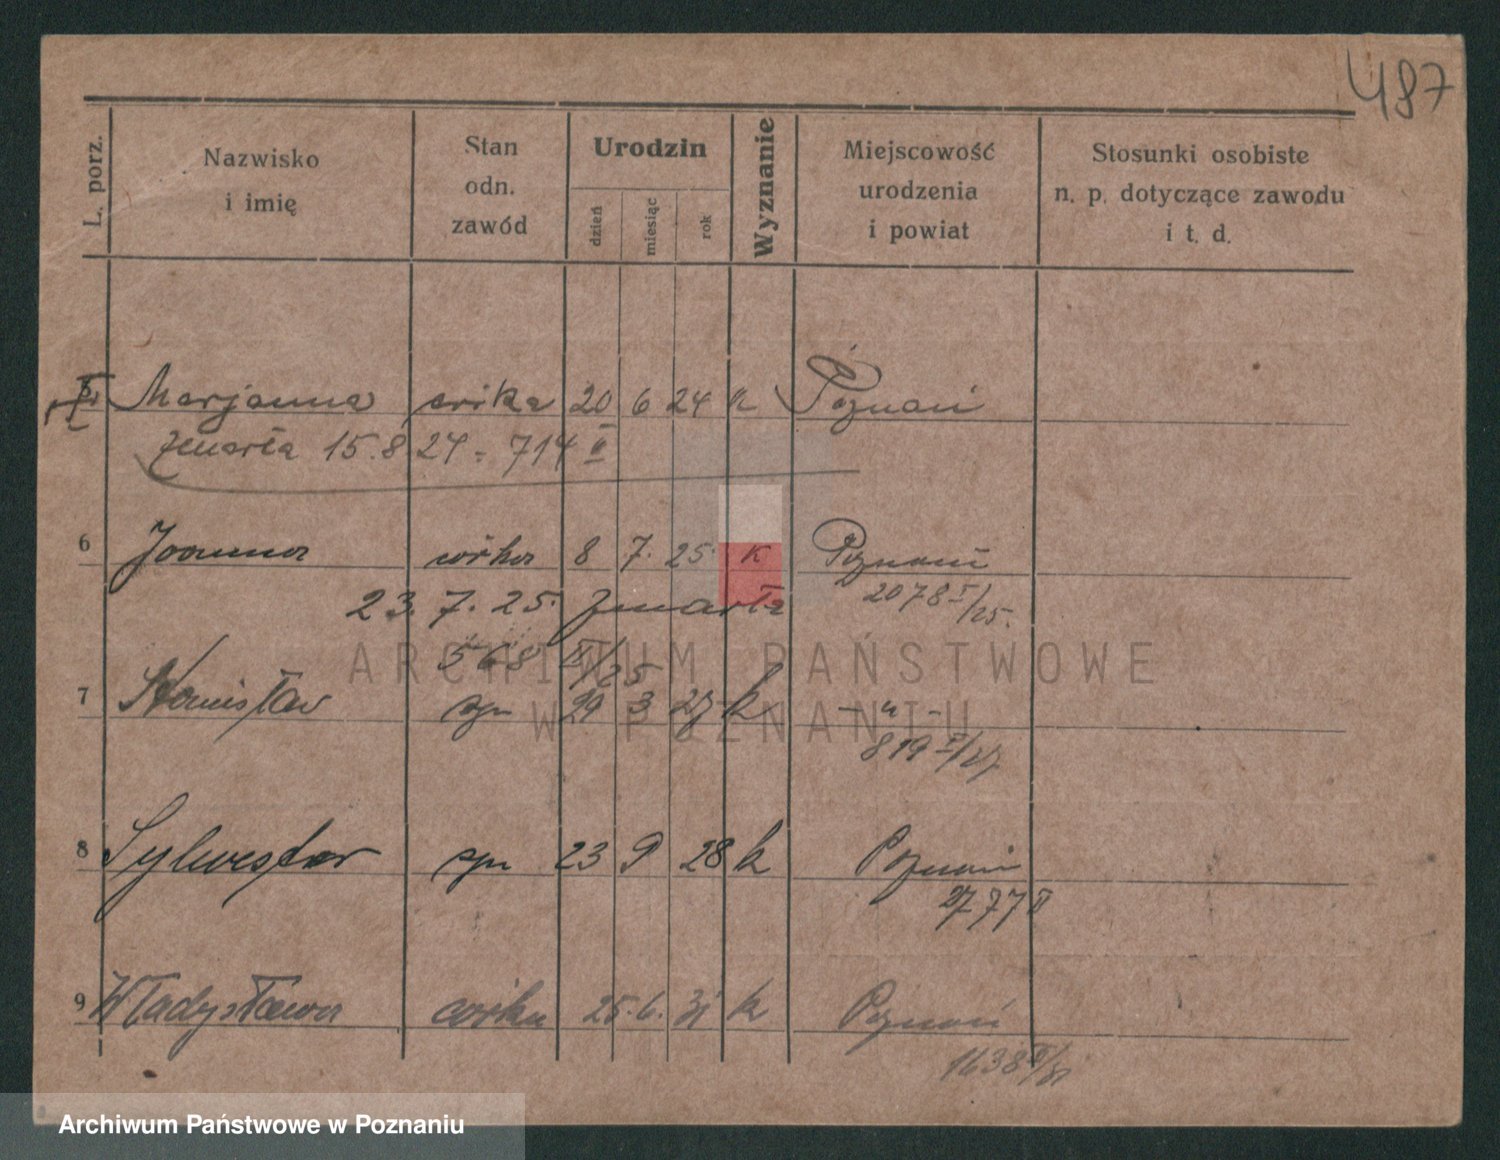 487
L. porz.
Nazwisko
i imię
Stan
odn.
zawód
Urodzin
dzień
miesiąc
rok
Wyznanie
Miejscowość
urodzenia
i powiat
Stosunki osobiste
n. p. dotyczące zawodu
i t. d.
5 Marjanna córka 20 6 24 k Poznań
zmarła 15.8 24 - 714 II
6 Joanna córka 8 7. 25. K Poznań
2078 I/25.
23. 7. 25. zmarła
568 II/25
7 Stanisław syn 29 3 27 k - " -
819 I/27
8 Sylwester syn 23 9 28 k Poznań
2777 II
9 Władysława córka 25. 6. 31 k Poznań
1638 II/31
ARCHIWUM PAŃSTWOWE
W POZNANIU
Archiwum Państwowe w Poznaniu